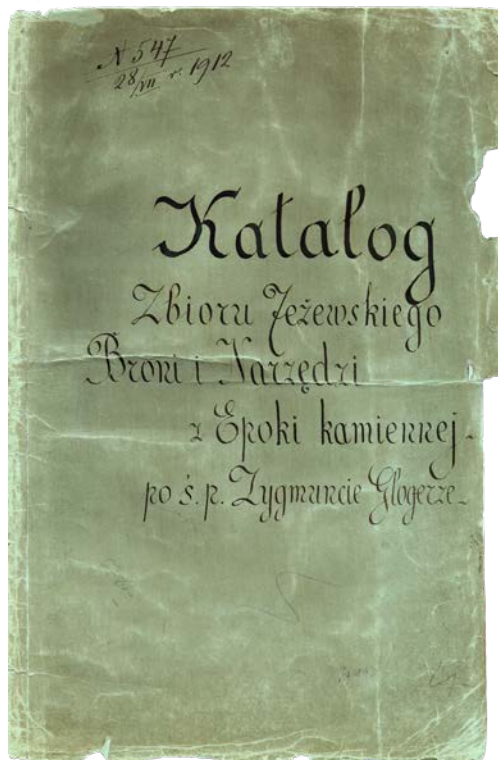 N 547
28/VII r. 1912
Katalog
Zbioru Jeżewskiego
Broni i Narzędzi
z Epoki kamiennej
po ś. p. Zygmuncie Glogerze